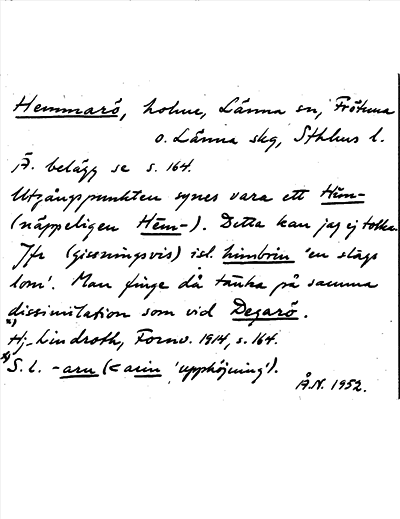 Hemmarö, holme, Länna sn, Frötuna
o. Länna skg, Sthlms l.
Ä. belägg se s. 164.
Utgångspunkten synes vara ett Hĕm-
(näppeligen Hēm-). Detta kan jag ej tolka.
Jfr (gissningsvis) isl. himbrin 'en slags
lom'. Man finge då tänka på samma
dissimilation som vid Degarö.
x)
Hj. Lindroth, Fornv. 1914, s. 164.
x) S. l. -aru (< arin 'upphöjning').
Å.N. 1952.